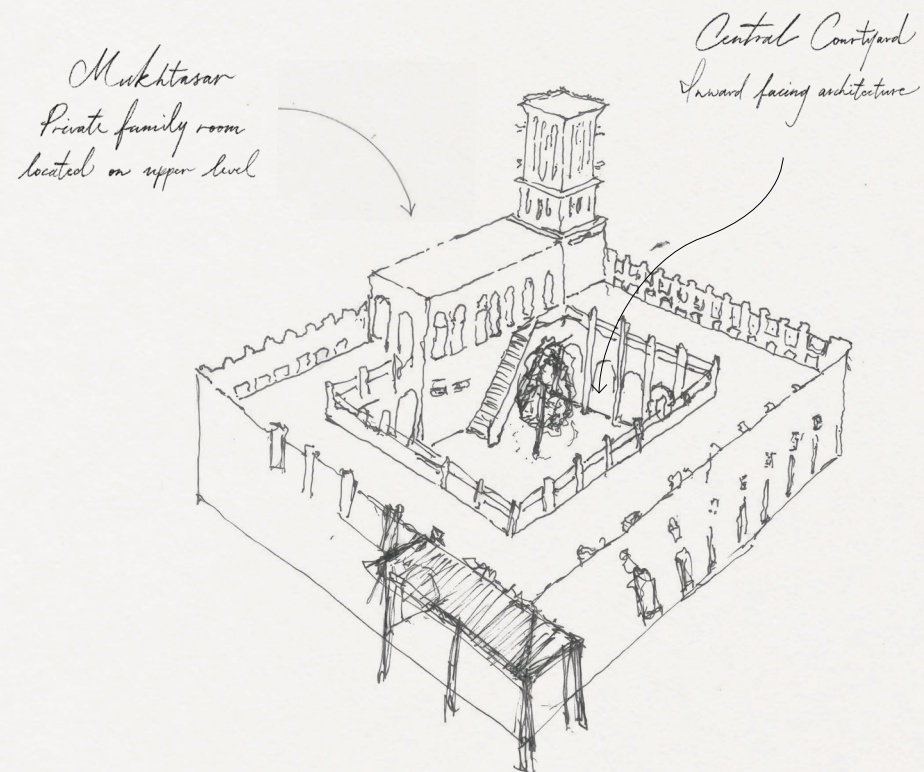 Mukhtasar
Private family room
located on upper level
Central Courtyard
Inward facing architecture